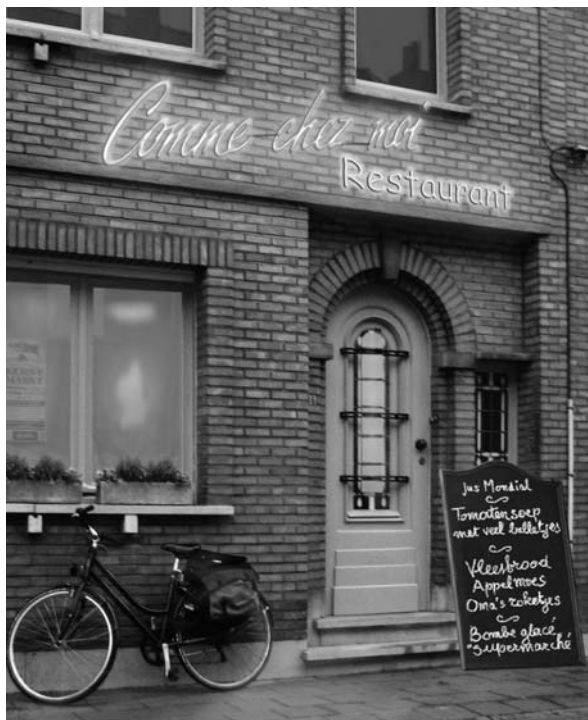 Comme chez moi
Restaurant
KERST
MARKT
Jus Mondial
Tomatensoep
met veel balletjes
Vleesbrood
Appelmoes
Oma's roketjes
Bombe glacé
"Supermarché"